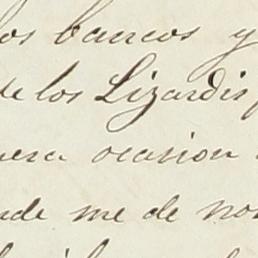 os bancos y
de los Lizardis
nera ocasion
nde me de no